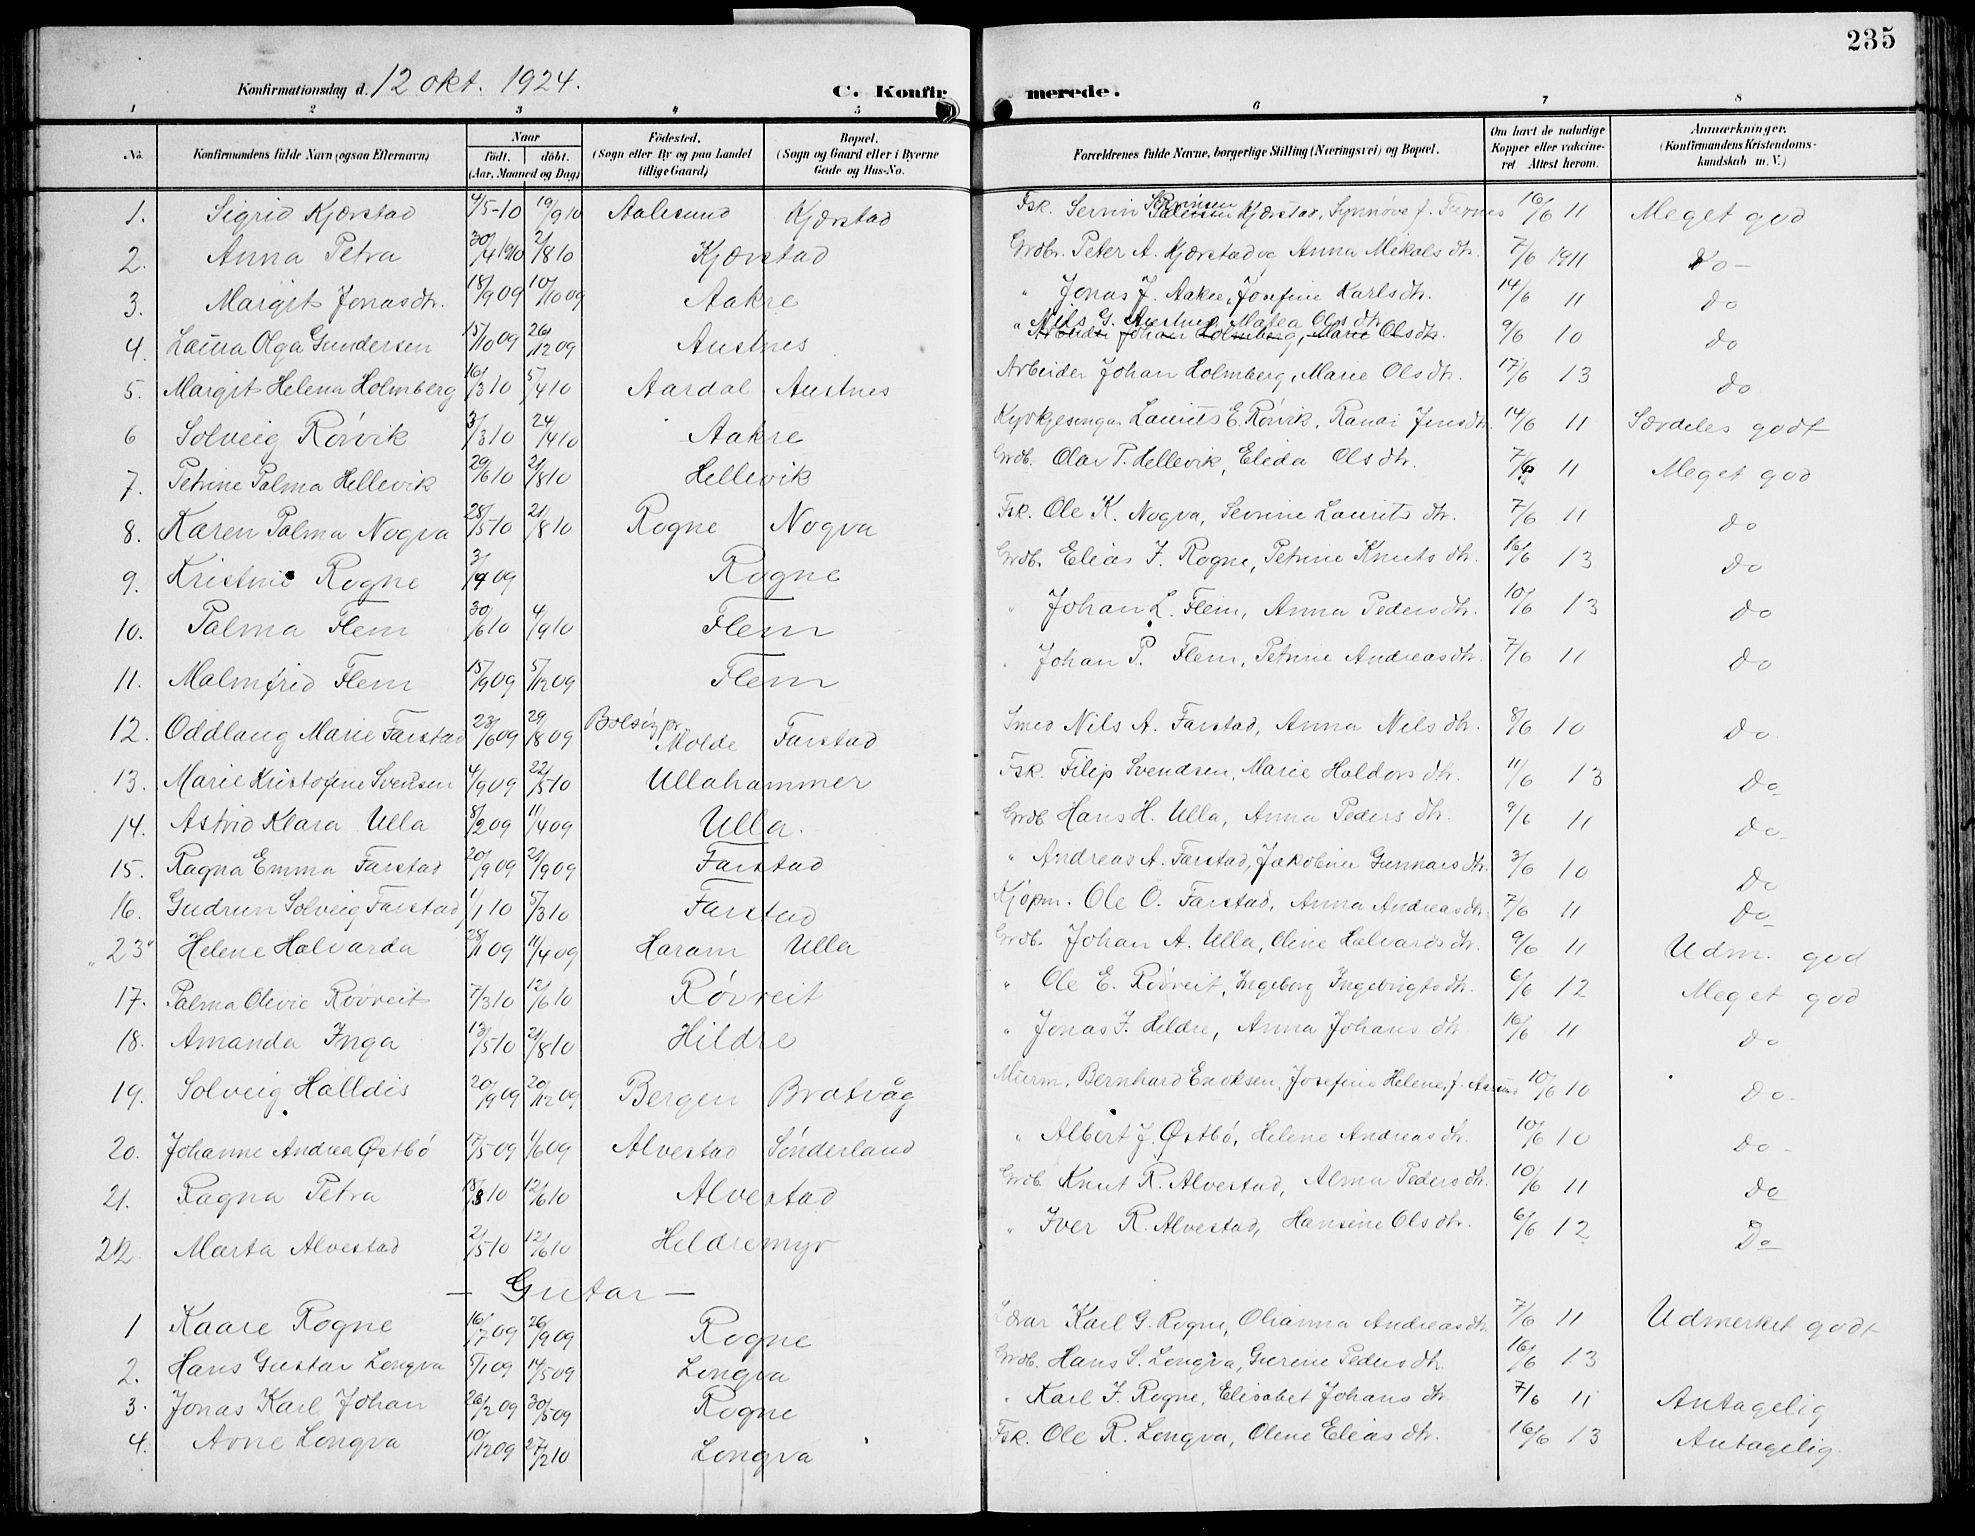 235
Konfirmationsdag d. 12 okt. 1924. C. Konfirmerede.
1 2 3 4 5 6 7 8
No. Konfirmandens fulde Navn (ogsaa Efternavn) Naar født. døbt. (Aar, Maaned og Dag) Fødested. (Sogn eller By og paa Landet tillige Gaard) Bopæl. (Sogn og Gaard eller i Byerne Gade og Hus-No. Forældrenes fulde Navne, borgerlige Stilling (Næringsvei) og Bopæl. Om havt de naturlige Kopper eller vakcineret Attest herom. Anmærkninger. (Konfirmandens Kristendomskundskab m. V.)
1. Sigrid Kjærstad 4/5-10 19/9 10 Aalesund Kjærstad Fsk. Severin Sørinsen Kjærstad, Synnøve f. Furnes 16/6 11 Meget god
2. Anna Petra 30/4 1910 2/8 10 Kjærstad Grdbr. Peter A. Kjærstad og Anna Mekals dtr. 7/6 1911 Do-
3. Margit Jonasdtr. 18/9 09 10/10 09 Aakre " Jonas J. Aakre, Josefine Karlsdtr. 14/6 11 do
4. Laura Olga Gundersen 15/10 09 26/12 09 Austnes " Nils G. Austnes, Matea Olsdtr. Arbeider Johan Holmberg, Marie Olsdtr. 9/6 10 do
5. Margit Helena Holmberg 16/3 10 5/4 10 Aardal Austnes Arbeider Johan Holmberg, Marie Olsdtr. 17/6 13 do
6 Solveig Rørvik 3/3 10 24/4 10 Aakre Kyrkjesongar Laurits E. Rørvik, Randi Jensdtr. 14/6 11 Særdeles godt
7. Petrine Palma Hellevik 29/6 10 21/8 10 Hellevik Grdb. Olav P. Hellevik, Elida Olsdtr. 7/6 11 Meget god
8. Karen Palma Nogva 28/5 10 21/8 10 Rogne Nogva Fsk. Ole K. Nogva, Sevrine Laurits dtr. 7/6 11 do
9. Kristine Rogne 3/4 09 Rogne Grdb. Elias J. Rogne, Petrine Knuts dtr. 16/6 13 do
10. Palma Flem 30/6 10 4/9 10 Flem " Johan L. Flem, Anna Peders dtr. 10/6 13 do
11. Malmfrid Flem 15/9 09 5/12 09 Flem " Johan P. Flem, Petrine Andreasdtr. 7/6 11 do
12. Oddlaug Marie Farstad 23/6 09 29/8 09 Bolsøy pr. Molde Farstad Smed Nils A. Farstad, Anna Nils dtr. 8/6 10 do
13. Marie Kristofine Svensen 4/9 09 22/5 10 Ullahammer Fsk. Filip Svendsen, Marie Haldors dtr. 11/6 13 do
14. Astrid Klara Ulla 8/2 09 11/4 09 Ulla. Grdb. Hans H. Ulla, Anna Peders dtr. 9/6 11 do
15. Ragna Emma Farstad 20/9 09 21/9 09 Farstad " Andreas A. Farstad, Jakobine Gunnars dtr. 3/6 10 Do
16. Gudrun Solveig Farstad 1/1 10 5/3 10 Farstad Kjøpm. Ole O. Farstad, Anna Andreasdtr. 7/6 11 Do
"23" Helene Halvarda 28/1 09 11/4 09 Haram Ulla Grdb. Johan A. Ulla, Oline Halvards dtr. 9/6 11 Udm. god
17. Palma Olevie Røvreit 7/3 10 12/6 10 Røvreit " Ole E. Røvreit, Ingeborg Ingebrigtsdtr. 6/6 12 Meget god
18. Amanda Inga 13/5 10 21/8 10 Hildre " Jonas J. Heldre, Anna Johans dtr. 16/6 11 do
19. Solveig Halldis 20/9 09 20/12 09 Bergen Bratvåg Murm. Bernhard Enoksen, Josefine Helene, f. 10/6 10 do
20. Johanne Andrea Østbø 17/5 09 1/6 09 Alvestad Sønderland " Albert J. Østbø, Helene Andreasdtr. 10/6 10 do
21. Ragna Petra 18/3 10 12/6 10 Alvestad Grdb. Knut R. Alvestad, Alma Peders dtr. 10/6 11 do
22. Marta Alvestad 2/5 10 12/6 10 Heldremyr " Iver R. Alvestad, Hansine Olsdtr. 6/6 12 Do
- Gutar -
1 Kaare Rogne 16/7 09 26/9 09 Rogne Lærar Karl G. Rogne, Olianna Andreasdtr. 7/6 11 Udmerket godt
2. Hans Gustav Longva 5/1 09 14/5 09 Longva Grdb. Hans S. Longva, Gurine Pedersdtr. 16/6 13
3. Jonas Karl Johan 26/2 09 30/5 09 Rogne " Karl J. Rogne, Elisabet Johans dtr 7/6 11 Antagelig
4. Arne Longva 10/12 09 27/2 10 Longva Fsk. Ole R. Longva, Oline Eliasdtr. 16/6 13 Antagelig.